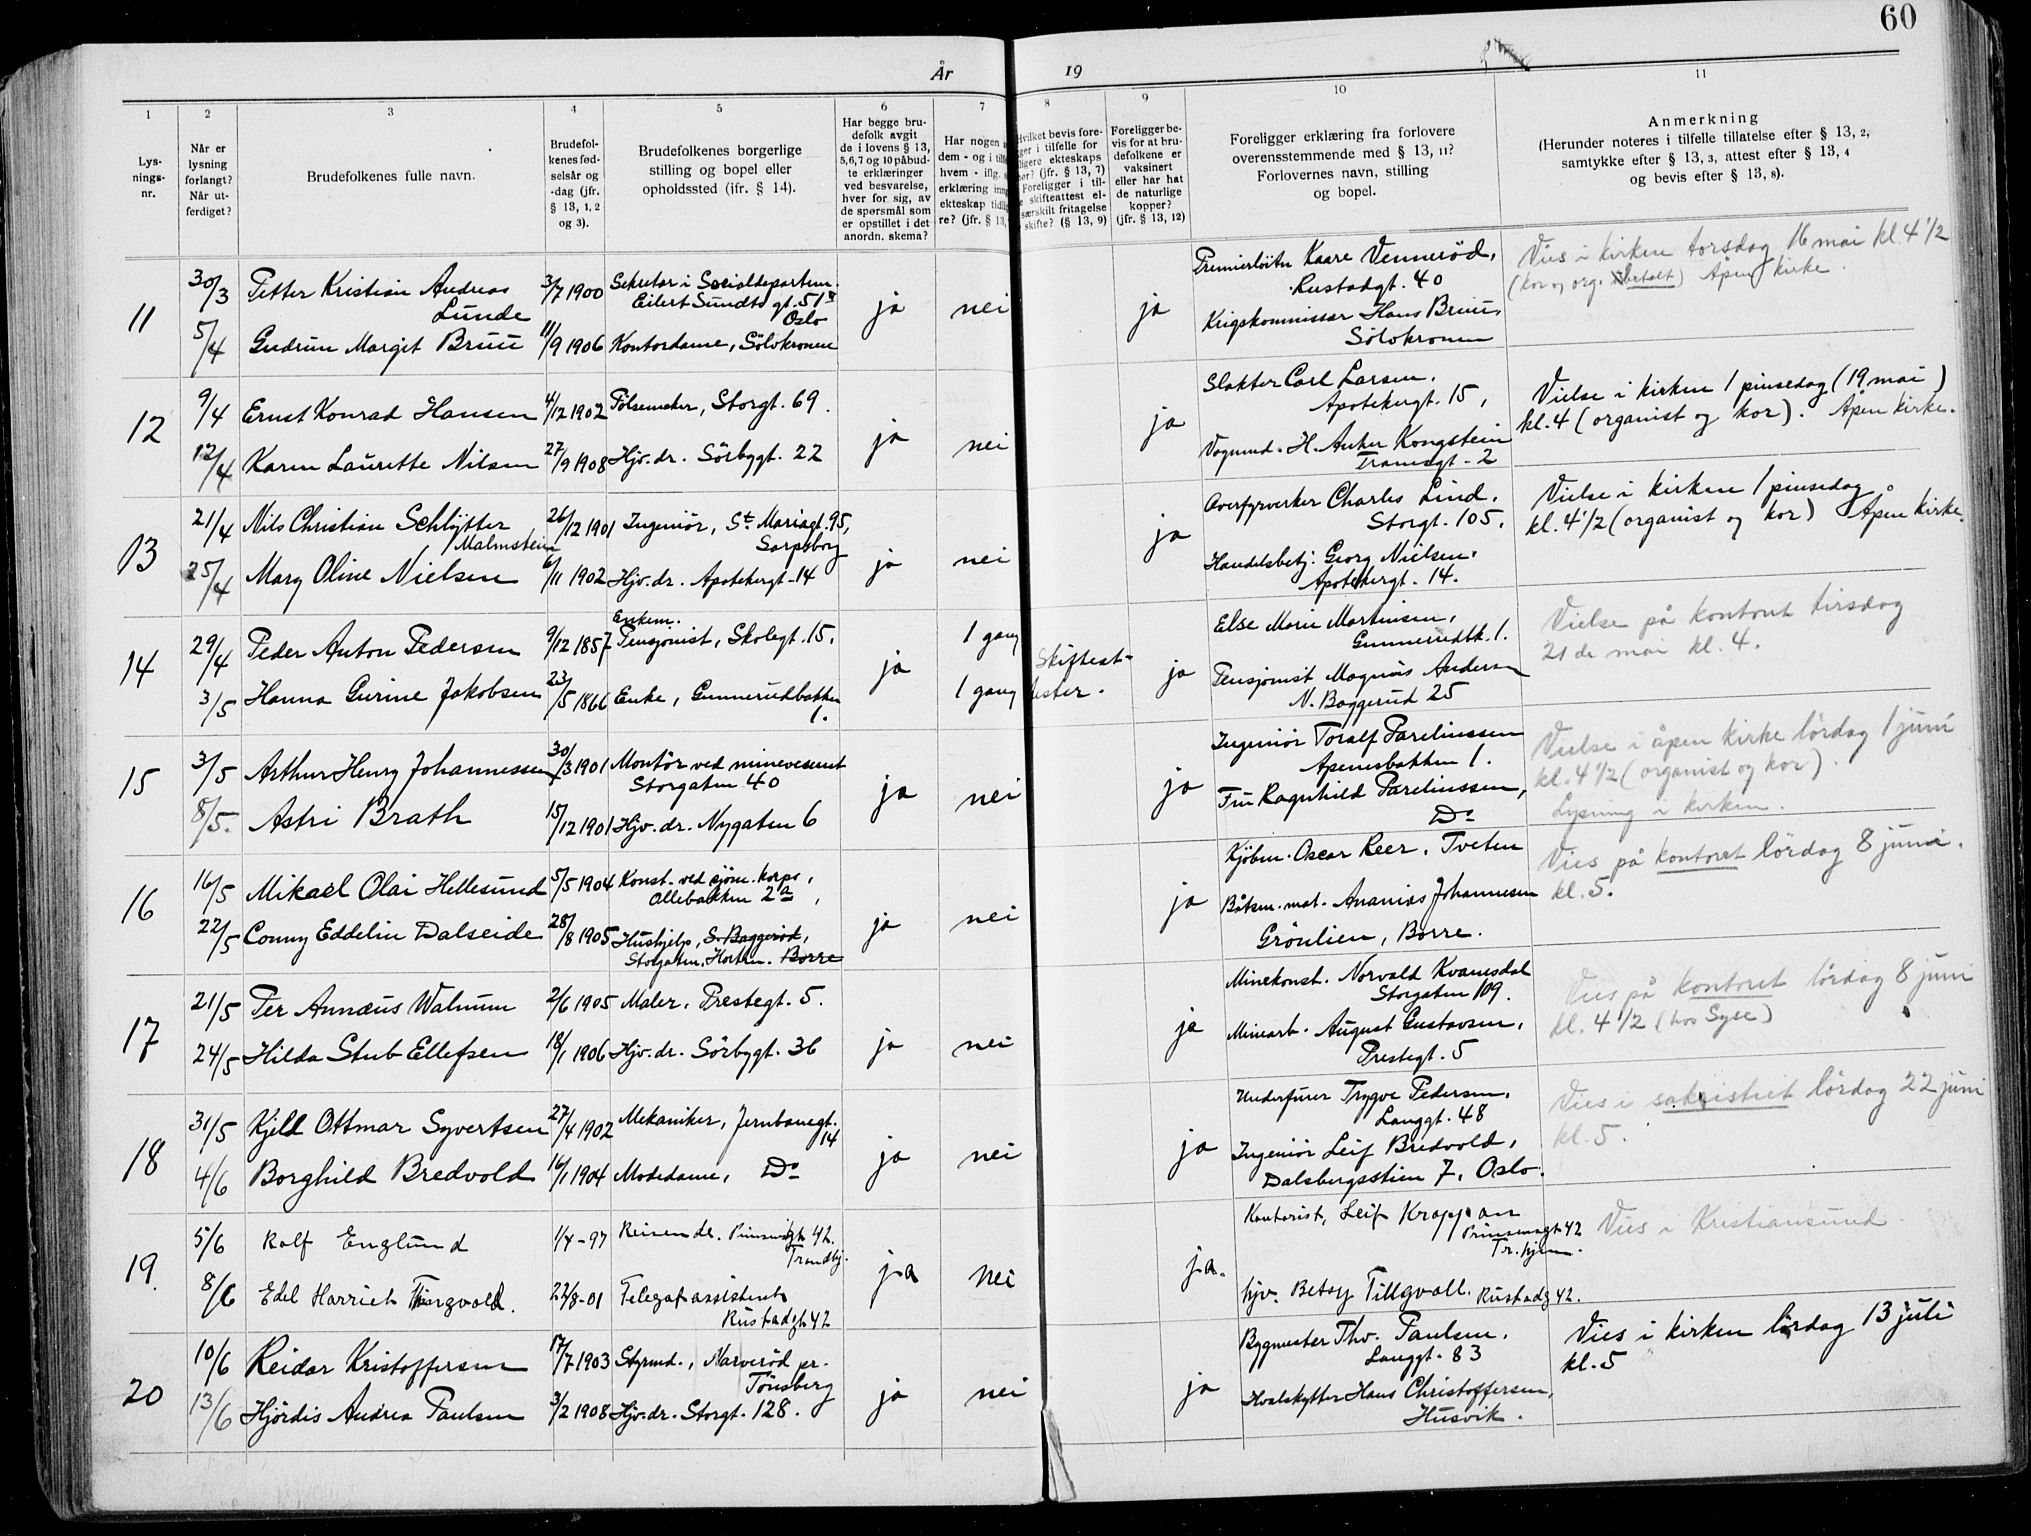 60
År 19
1 2 3 4 5 6 7 8 9 10 11
Lys-
nings-
nr.
Når er
lysning
forlangt?
Når ut-
ferdiget?
Brudefolkenes fulle navn.
Brudefol-
kenes fød-
selsår og
-dag (jfr.
§ 13, 1, 2
og 3).
Brudefolkenes borgerlige
stilling og bopel eller
opholdssted (jfr. § 14).
Har begge bru-
defolk avgit
de i lovens § 13,
5,6,7 og 10 påbud-
te erklæringer
ved besvarelse,
hver for sig, av
de spørsmål som
er opstillet i det
anordn. skema?
Har nogen
dem - og i
hvem - iflg.
erklæring
ekteskap
re? (jfr. § 13,
Hvilket bevis fore-
ger i tilfelle for
ligere ekteskaps
(jfr. § 13, 7)
Foreligger i til-
skifteattest el-
særskilt fritagelse
skifte? (§ 13, 9)
Foreligger be-
vis for at bru-
defolkene er
vaksinert
eller har hat
de naturlige
kopper?
(jfr. § 13, 12)
Foreligger erklæring fra forlovere
overensstemmende med § 13, 11?
Forlovernes navn, stilling
og bopel.
Anmerkning
(Herunder noteres i tilfelle tillatelse efter § 13, 2,
samtykke efter § 13, 3, attest efter § 13, 4
og bevis efter § 13, 8).
11
30/3 Petter Kristian Andreas
Lunde
3/7 1900 Sekretær i Socialdepartem.
Eilert Sundts gt. 51
Oslo
5/4 Gudrun Margit Bruu 11/9 1906 Kontordame, Sölvkronen
ja nei ja
Premierlöitn Kaare Vennerød,
Rustadgt. 40
Krigskommissær Hans Bruu,
Sölvkronen
Vies i kirken torsdag 16 mai kl. 4 1/2
(kor og org. betalt) Åpen kirke.
12
9/4 Ernst Konrad Hansen 4/12 1902 Pölsemaker, Storgt. 69.
12/4 Karen Laurette Nilsen 27/9 1908 Hjv. dr. Sörbygt. 22
ja nei ja
Slakter Carl Larsen.
Apotekergt. 15,
Vognmd. H. Anker Kongstein
Tranegt. 2
Vielse i kirken 1 pinsedag (19 mai)
kl. 4 (organist og kor). Åpen kirke.
13
21/4 Nils Christian Schlytter
Malmstein
26/12 1901 Ingeniör, St. Mariagt. 95,
Sarpsborg
25/4 Mary Oline Nielsen 6/11 1902 Hjv. dr. Apotekergt. 14
ja nei ja
Overfyrverker Charles Lind.
Storgt. 105.
Handelsbetj. Georg Nielsen.
Apotekergt. 14.
Vielse i kirken 1 pinsedag
kl. 4 1/2 (organist og kor) Åpen kirke.
14
29/4 Peder Anton Pedersen 9/12 1857 Enkem.
Pensjonist, Skolegt. 15.
3/5 Hanna Gurine Jakobsen 23/5 1866 Enke, Gunnerudbakken
1.
ja 1 gang
1 gang
Skifteat-
tester.
ja
Else Marie Martinsen,
Gunnerudbk. 1.
Pensjonist Magnus Andersen
N. Baggerud 25
Vielse på kontoret tirsdag
21 de mai kl. 4.
15
3/5 Arthur Henry Johannessen 30/3 1901 Montör ved minevesenet
Storgaten 40
8/5. Astri Brath 15/12 1901 Hjv. dr. Nygaten 6
ja nei ja
Ingeniör Toralf Parelinssen
Apenesbakken 1.
Fru Ragnhild Parelinssen,
Do
Vielse i åpen kirke lördag 1 juni
kl. 4 1/2 (organist og kor).
Lysning i kirken.
16
16/5 Mikael Olai Hellesund 5/5 1904 Konst. ved sjöm. korps,
Ollebakken 2a,
22/5 Conny Eddelin Dalseide 28/8 1905 Hushjelp, S. Baggeröd,
Storgaten, Horten. Borre
ja nei ja
Kjöbm. Oscar Reer. Tveten
Båtsm. mat. Ananias Johannesen
Grönlien, Borre.
Vies på kontoret lördag 8 juni.
kl. 5.
17
21/5 Per Annæus Walnum 2/6 1905 Maler. Prestegt. 5.
24/5 Hilda Stub Ellefsen 18/1 1906 Hjv. dr. Sörbygt. 36
ja nei ja
Minekonst. Norvald Kvanesdal
Storgaten 109.
Minearb. August Gustavsen,
Prestegt. 5
Vies på kontoret lördag 8 juni
kl. 4 1/2 (hos Syse)
18
31/5 Kjell Ottmar Syvertsen 27/4 1902 Mekaniker, Jernbanegt.
14
4/6 Borghild Bredvold 16/1 1904 Modedame, Do
ja nei ja
Underfurer Trygve Pedersen,
Langgt. 48
Ingeniör Leif Bredvold,
Dalsbergsstien 7. Oslo.
Vies i sakristiet lördag 22 juni
kl. 5.
19.
5/6 Rolf Englund 1/4-97 Reisende. Prinsensgt 42.
Trondhj.
8/6 Edel Harriet Tingvold. 22/8-01 Telegrafassistent
Rustadgt 42
ja nei ja.
Kontorist, Leif Kroppan
Prinsensgt 42
Tr.hjem.
hjv. Betsy Tillgvoll. Rustadg 42.
Vies i Kristiansund
20
10/6 Reidar Kristoffersen 17/7 1903 Styrmd., Narveröd pr.
Tönsberg
13/6 Hjördis Andrea Paulsen 3/2 1908 Hjv. dr. Storgt. 128.
ja nei ja
Bygmester Thv. Paulsen.
Langgt. 83
Hvalskytter Hans Christoffersen,
Husvik.
Vies i kirken lördag 13 juli
kl. 5